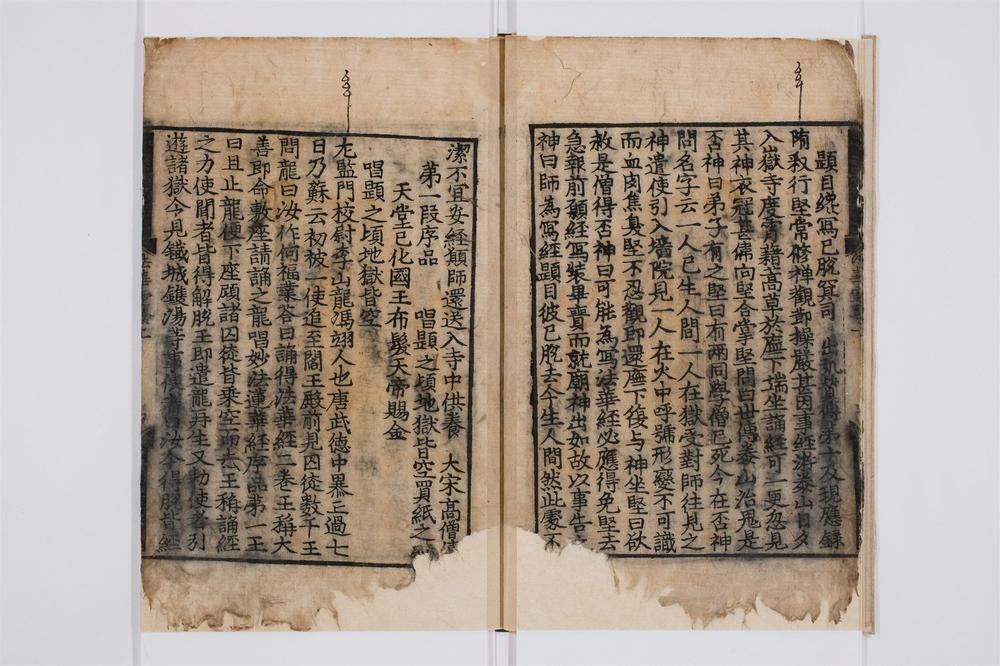 題目纔寫已脫冥司 出弘贊傳第十及現應錄
隋敎行堅常修禪觀節操嚴甚因事經游泰山日夕
入嶽寺度宵藉高草於廡下端坐誦經可一更忽見
其神衣冠甚偉向堅合掌堅問曰世傳泰山治鬼是
否神曰弟子有之堅曰有兩同學僧已死今在否神
問名字云一人已生人間一人在獄受對師往見之
神遣使引入墻院見一人在火中呼號形變不可識
而血肉焦臭堅不忍觀即還廡下復与神坐堅曰欲
救是僧得否神曰可能爲寫法華經必應得免堅去
急報前願經寫裝畢賫而就廟神出如故以事告
神曰師爲寫經題目彼已脫去今生人間然此處不
潔不宜安經願師還送入寺中供養 大宋高僧
第一段序品 唱題之頃地獄皆空買紙之
天堂已化國王布髮天帝賜金
唱題之頃地獄皆空
尢監門校尉李山龍馮翊人也唐武德中暴亡過七
日乃蘇云初被一使追至閻王殿前見囚徒數千王
問龍曰汝作何福業答曰誦得法華經二卷王稱大
善即命敷座請誦之龍唱妙法蓮華經序品第一王
曰且止龍便下座顧諸囚徒皆乘空而去王稱誦經
之力使聞者皆得解脫王即遣龍再生又勑使者引
遊諸獄今見鐵城鑊湯等事使者曰汝今得脫皆經